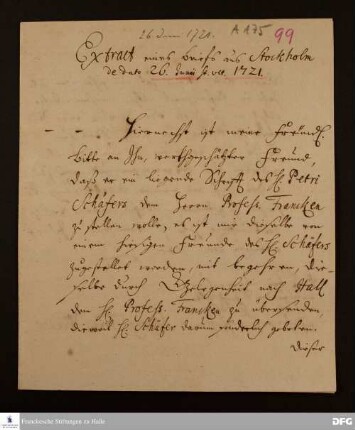 26 Juni 1721.
A 175
99
Extract eines briefs aus Stockholm
de dato 26. Junii st. vet. 1721.
Hiernechst ist meine freundl.
bitte an Ihn, werthgeschätzter Freund,
daß er ein liegende Schrifft des H. Petri
Schäfers dem Herrn Profess. Francken
zu stellen wolle, es ist mir dieselbe von
einem hiesigen Freunde des H. Schäfers
zugestellet worden, mit begehren, die-
selbe durch Gelegenheit nach Hall
dem H. Profess. Francken zu übersenden,
dieweil H. Schäfer darum gebeten.
Dieser
Franckesche Stiftungen zu Halle
DFG